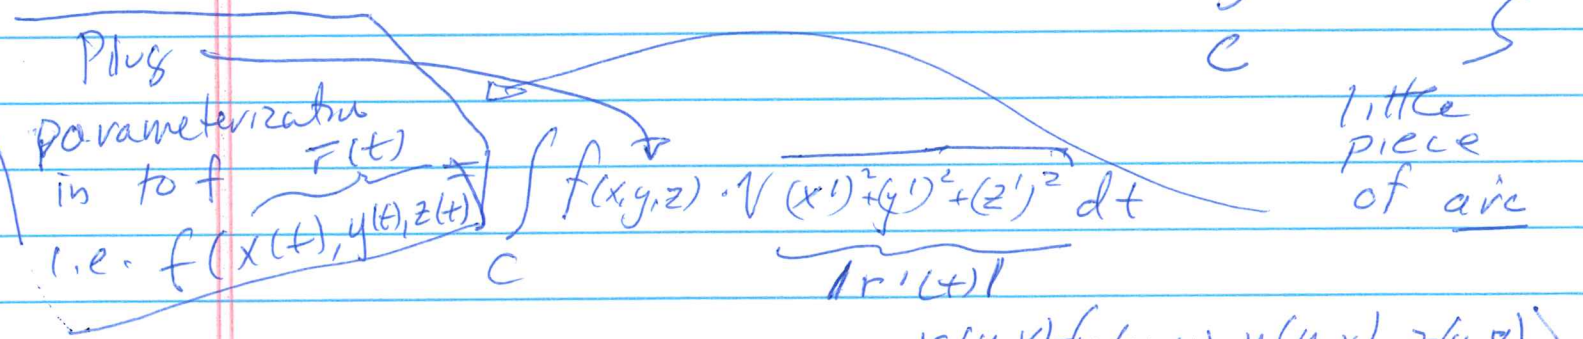 Plug
parameterization
in to f
r̄(t)
i.e. f(x(t), y(t), z(t))
∫ f(x,y,z) · √(x')²+(y')²+(z')² dt
C
|r'(t)|
C
little
piece
of arc